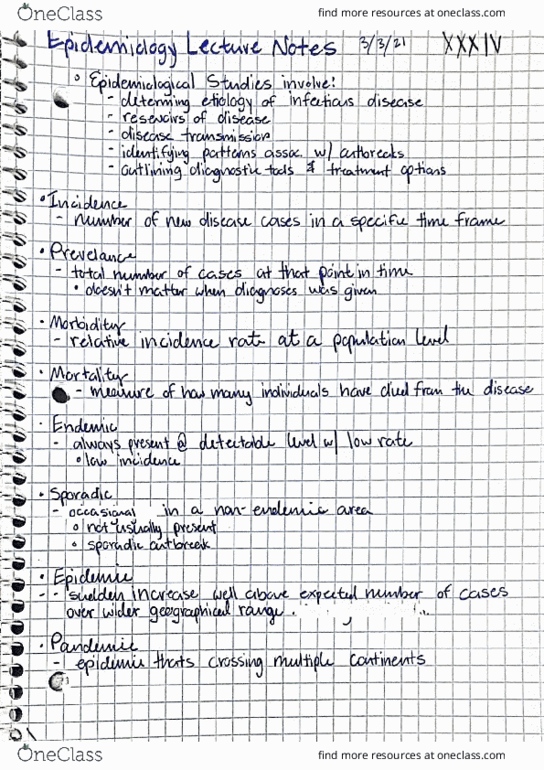 OneClass
find more resources at oneclass.com
Epidemiology Lecture Notes 3/3/21 XXXIV
◦ Epidemiological Studies involve:
- determing etiology of infectious disease
- resevoirs of disease
- disease transmission
- identifying patterns assoc. w/ outbreaks
- outlining diagnostic tools & treatment options
• Incidence
- number of new disease cases in a specific time frame
• Prevelance
- total number of cases at that point in time
• doesn't matter when diagnoses was given
• Morbidity
- relative incidence rate at a population level
• Mortality
- measure of how many individuals have died from the disease
• Endemic
- always present @ detectable level w/ low rate
◦ low incidence
• Sporadic
- occasional in a non-endemic area
◦ not usually present
◦ sporadic outbreak
• Epidemic
- sudden increase well above expected number of cases
over wider geographical range.
• Pandemic
- epidemic thats crossing multiple continents
OneClass
find more resources at oneclass.com